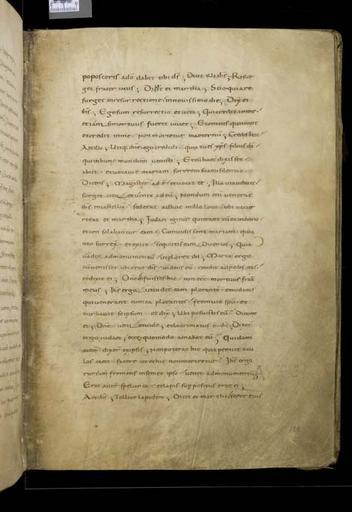 poposceris adõ dabit tibi dš ; Dicit illi ihs ; Resur
get frater tuus ; Dicit ei martha ; Scio quia re
surget inresurrectione innovissimo die ; Dixit ei
ihs ; Ego sum resurrectio et vita ; Qui credit inme
etiam simortuus fuerit vivet ; Et omnis qui vivit
et credit inme non morietur inaeternum ; Credis hoc
Ait illi ; Utique dne ego credidi quia tu es xps filius di
qui inhunc mundum venisti ; Et cum haec dixisset
abiit et vocavit mariam sororem suam silentio
Dicens ; Magister adest et vocat te ; Illa ut audivit
surgit cito et venit ad eum ; Nondum enim venerat
ihs incastellum sed erat adhuc inillo loco ubi occur
rerat ei martha ; Iudaei igitur qui erant cum ea indomo
et consolabantur eam ; Cum vidissent mariam quia
cito surrexit et exiit secuti sunt eam Dicentes ; Quia
vadit admonumentum ut ploret ibi ; Maria ergo
cum venisset ubi erat ihs videns eum cecidit adpedes eius
et dicit ei ; Dne si fuisses hic non esset mortuus frater
meus ; Ihs ergo ut vidit eam plorantem et iudaeos
qui venerant cum ea plorantes fremuit spu et
turbavit seipsum et dixit ; Ubi posuistis eum Dicunt
ei ; Dne veni et vide ; et lacrimatus est ihs ; Dixer
ergo iudaei ; ecce quomodo amabat eum ; Quidam
autem dixer exipsis ; non poterat hic qui aperuit ocu
los caeci facere ut et hic non moreretur ; Ihs ergo
rursum fremens insemet ipso venit admonumentum
Erat autem spelunca et lapis superpositus erat ei ;
Ait ihs ; Tollite lapidem ; Dicit ei martha soror eius